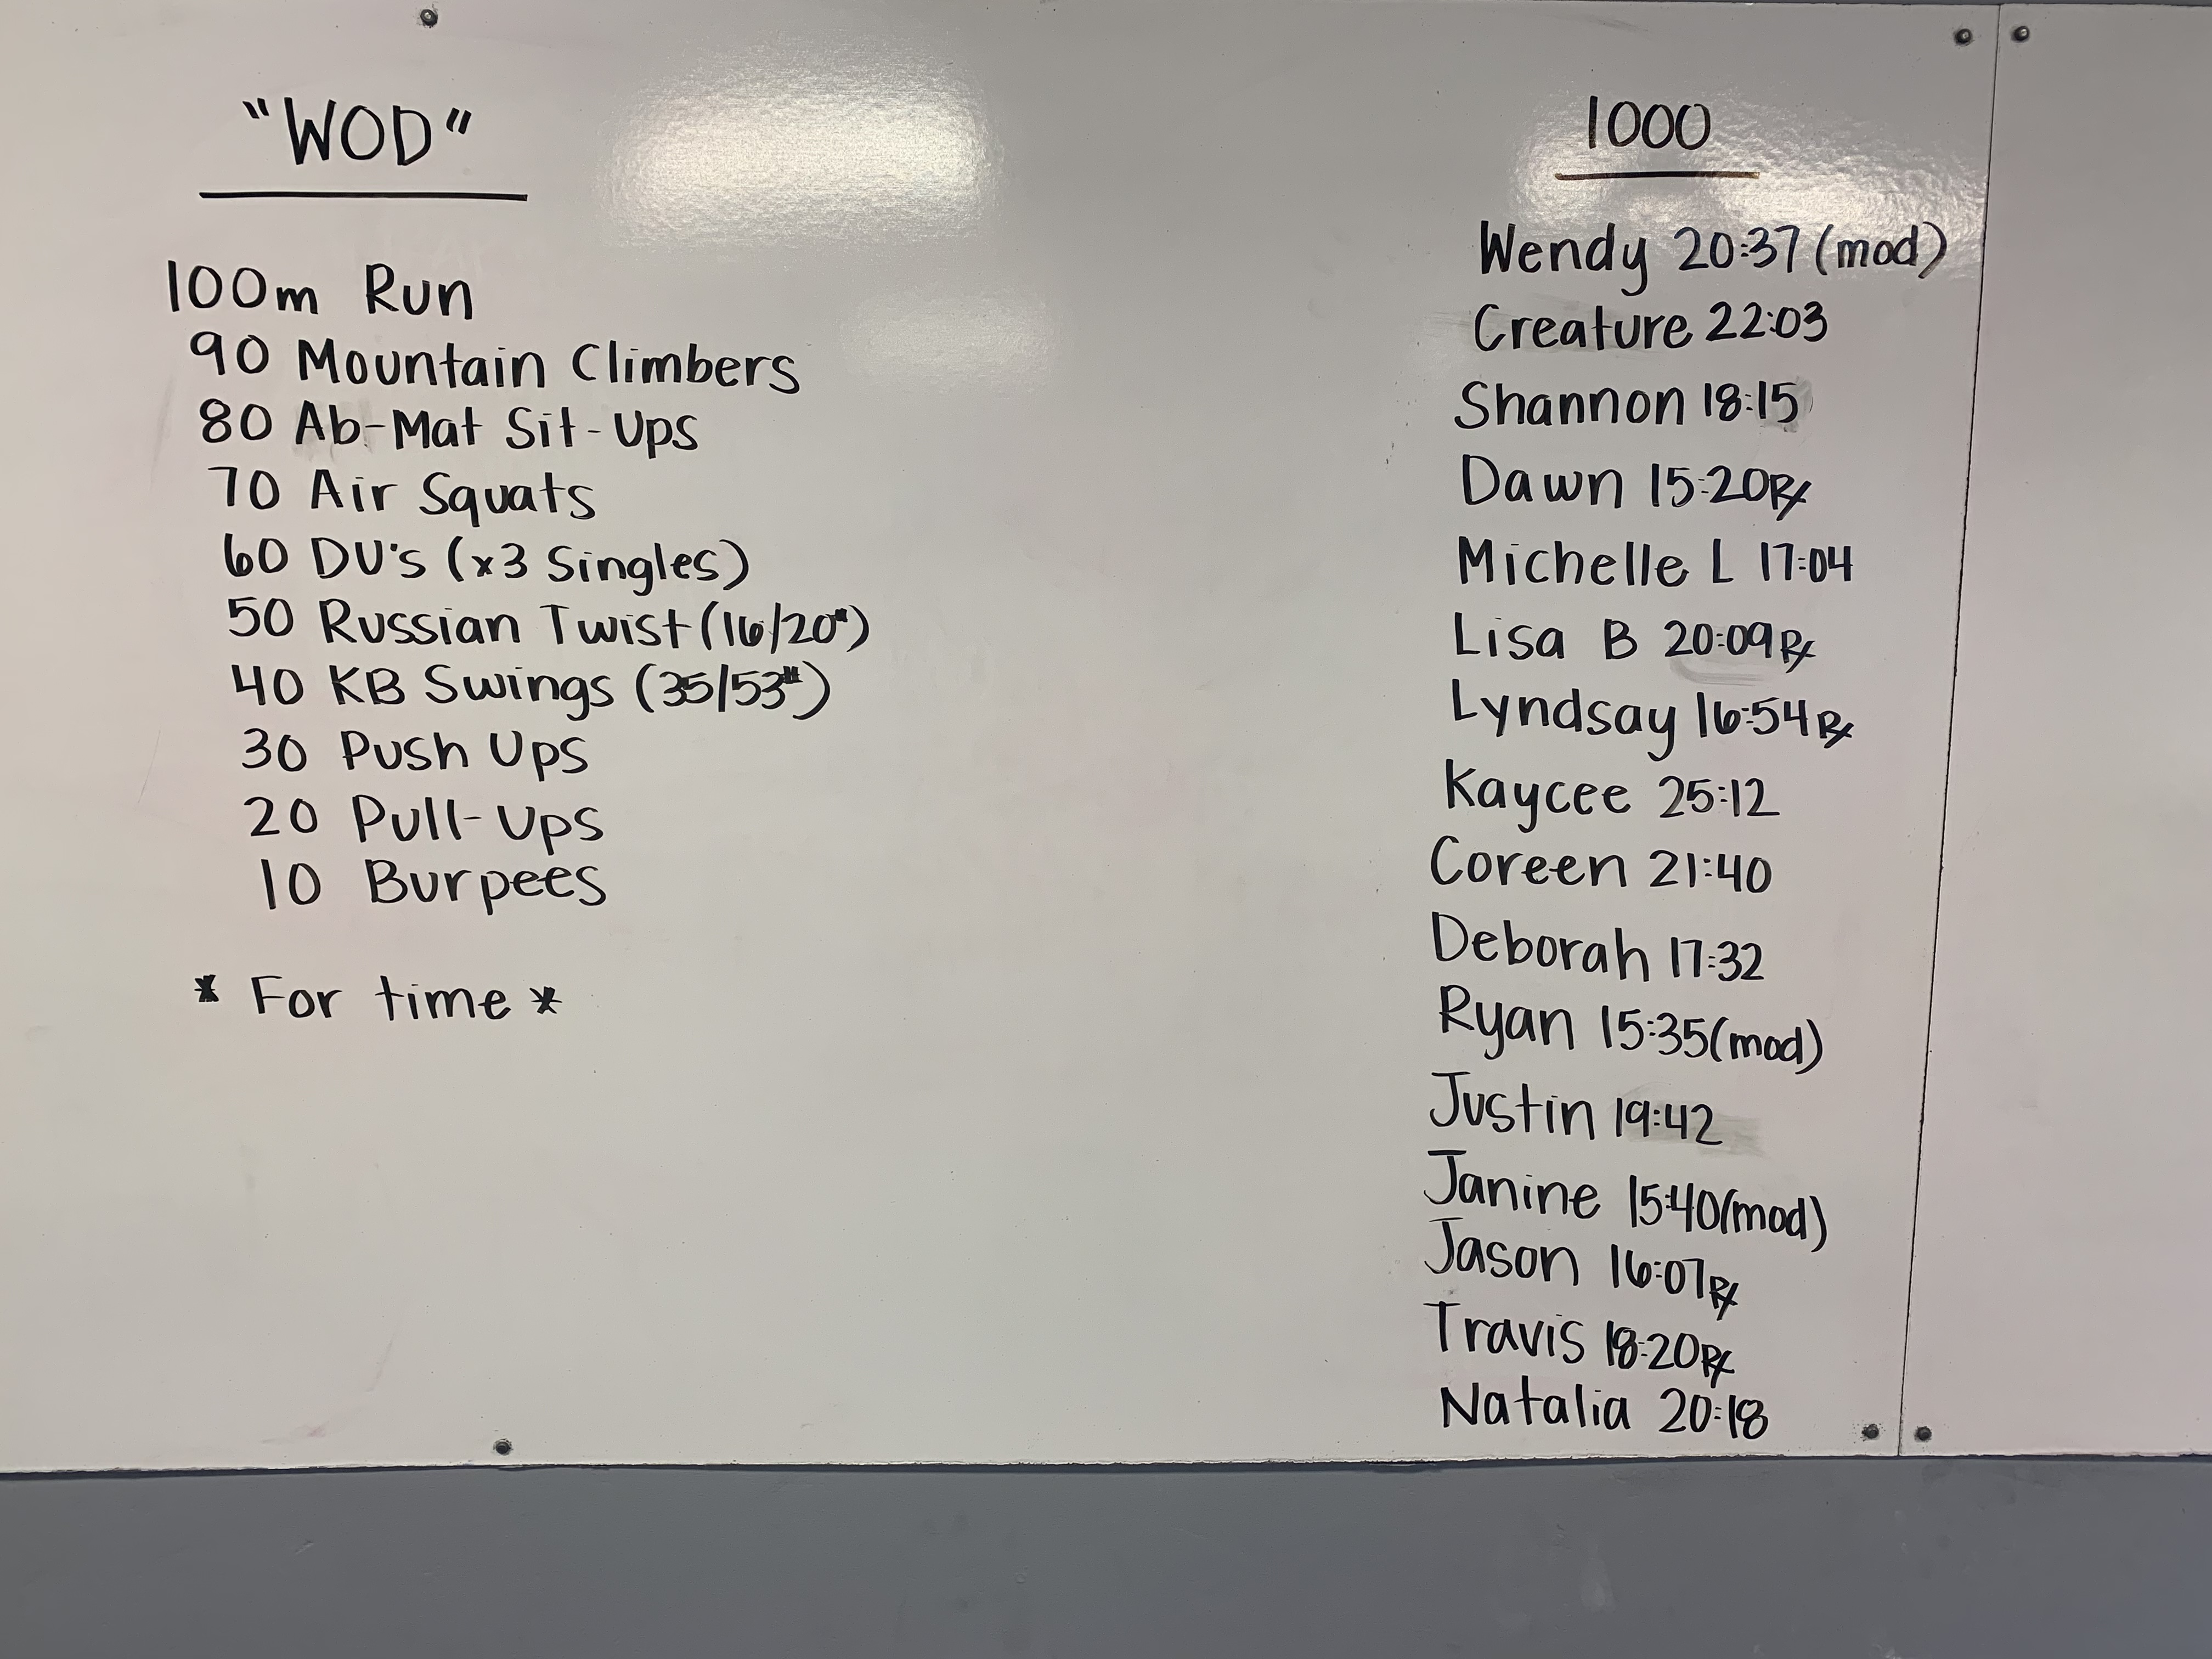 "WOD"
100m Run
90 Mountain Climbers
80 Ab-Mat Sit-Ups
70 Air Squats
60 DU's (x3 Singles)
50 Russian Twist (16/20#)
40 KB Swings (35/53#)
30 Push Ups
20 Pull-Ups
10 Burpees
* For time *
1000
Wendy 20:37 (mod)
Creature 22:03
Shannon 18:15
Dawn 15:20 Rx
Michelle L 17:04
Lisa B 20:09 Rx
Lyndsay 16:54 Rx
Kaycee 25:12
Coreen 21:40
Deborah 17:32
Ryan 15:35 (mod)
Justin 19:42
Janine 15:40 (mod)
Jason 16:07 Rx
Travis 18:20 Rx
Natalia 20:18